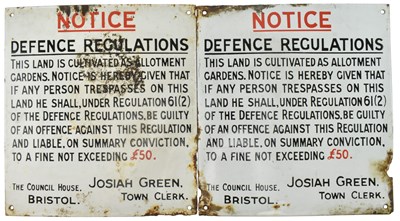 NOTICE
DEFENCE REGULATIONS
THIS LAND IS CULTIVATED AS ALLOTMENT
GARDENS. NOTICE IS HEREBY GIVEN THAT
IF ANY PERSON TRESPASSES ON THIS
LAND HE SHALL, UNDER REGULATION 61(2)
OF THE DEFENCE REGULATIONS, BE GUILTY
OF AN OFFENCE AGAINST THIS REGULATION
AND LIABLE, ON SUMMARY CONVICTION,
TO A FINE NOT EXCEEDING £50.
THE COUNCIL HOUSE, JOSIAH GREEN,
BRISTOL. TOWN CLERK.
NOTICE
DEFENCE REGULATIONS
THIS LAND IS CULTIVATED AS ALLOTMENT
GARDENS. NOTICE IS HEREBY GIVEN THAT
IF ANY PERSON TRESPASSES ON THIS
LAND HE SHALL, UNDER REGULATION 61(2)
OF THE DEFENCE REGULATIONS, BE GUILTY
OF AN OFFENCE AGAINST THIS REGULATION
AND LIABLE, ON SUMMARY CONVICTION,
TO A FINE NOT EXCEEDING £50.
THE COUNCIL HOUSE, JOSIAH GREEN,
BRISTOL. TOWN CLERK.